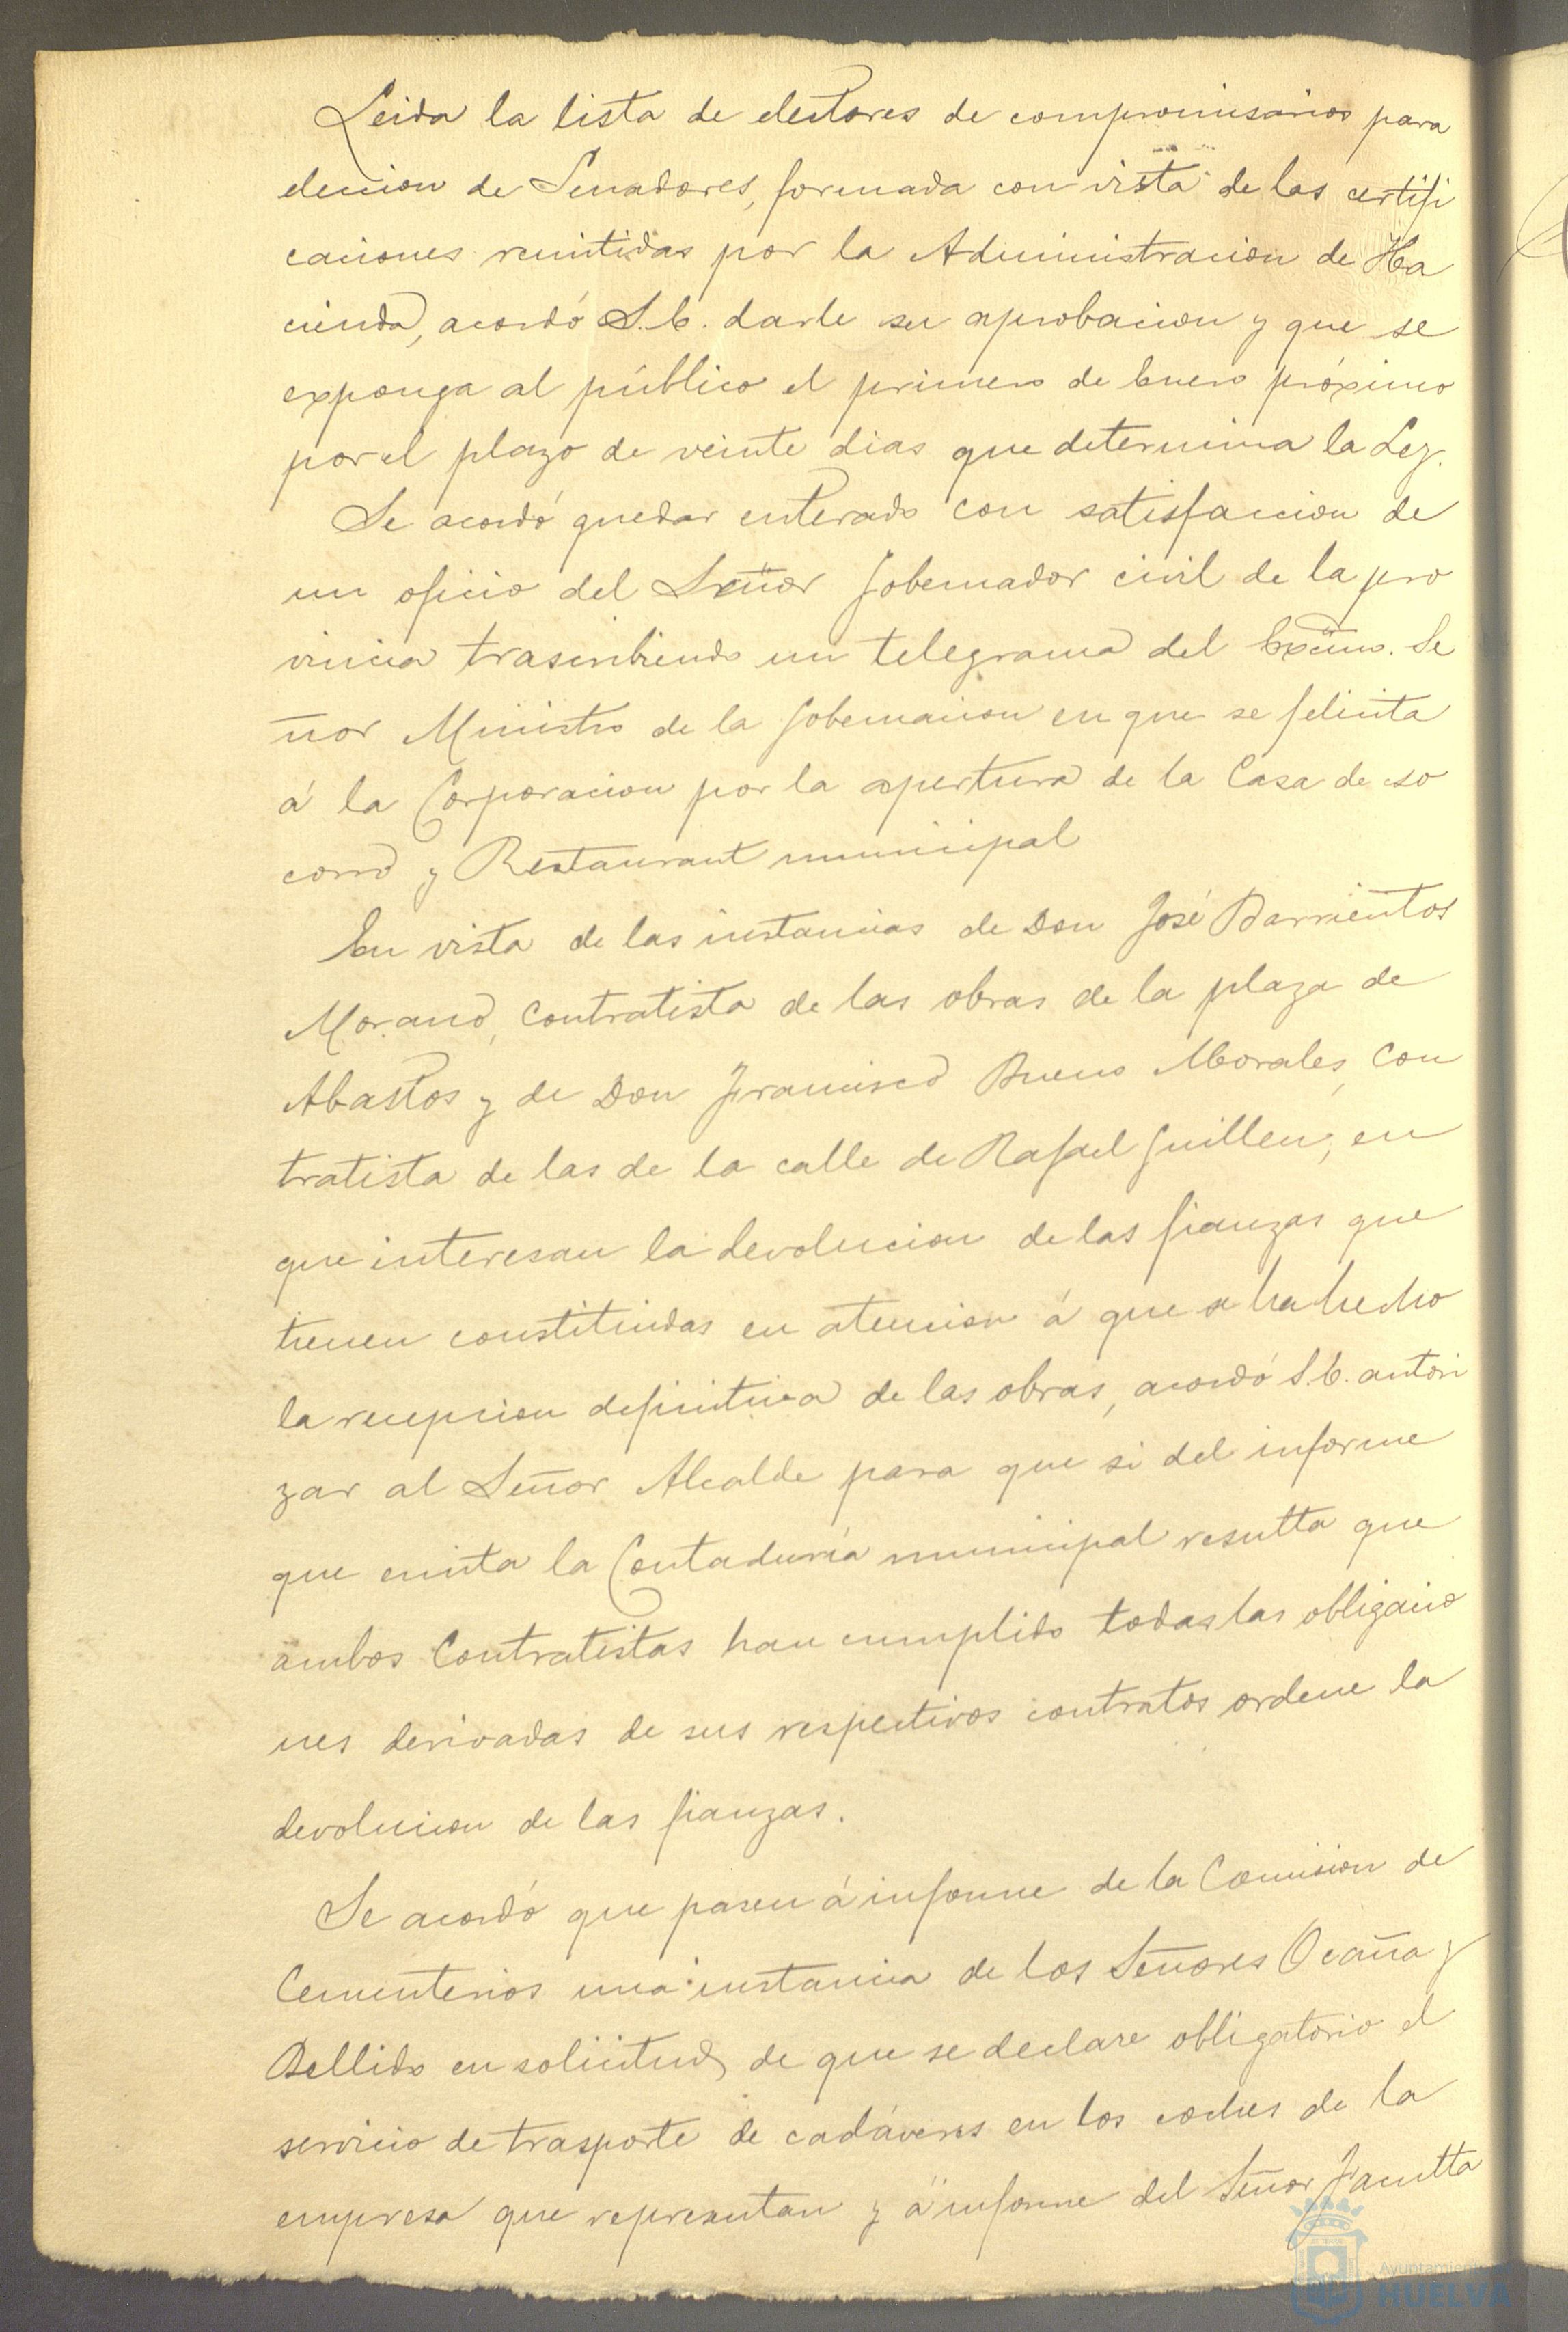 Leida la lista de electores de compromisarios para
eleccion de Senadores, formada con vista de las certifi
caciones remitidas por la Administracion de Ha
cienda, acordó S.E. darle su aprobacion y que se
exponga al público el primero de Enero próximo
por el plazo de veinte dias que determina la Ley.
Se acordó quedar enterado con satisfaccion de
un oficio del Señor Gobernador civil de la pro
vincia trascribiendo un telegrama del Excmo. Se
ñor Ministro de la Gobernacion en que se felicita
á la Corporacion por la apertura de la Casa de so
corro y Restaurant municipal
En vista de las instancias de Don José Barrientos
Morano, contratista de las obras de la plaza de
Abastos y de Don Francisco Bueno Morales, con
tratista de las de la calle de Rafael Guillen, en
que interesan la devolucion de las fianzas que
tienen constituidas en atencion á que se ha hecho
la recepcion definitiva de las obras, acordó S.E. autori
zar al Señor Alcalde para que si del informe
que emita la Contaduría municipal resulta que
ambos Contratistas han cumplido todas las obligacio
nes derivadas de sus respectivos contratos ordene la
devolucion de las fianzas.
Se acordó que pasen á informe de la Comision de
Cementerios una instancia de los Señores Ocaña y
Bellido en solicitud de que se declare obligatorio el
servicio de trasporte de cadáveres en los coches de la
empresa que representan y á informe del Señor Faculta
Ayuntamiento
HUELVA